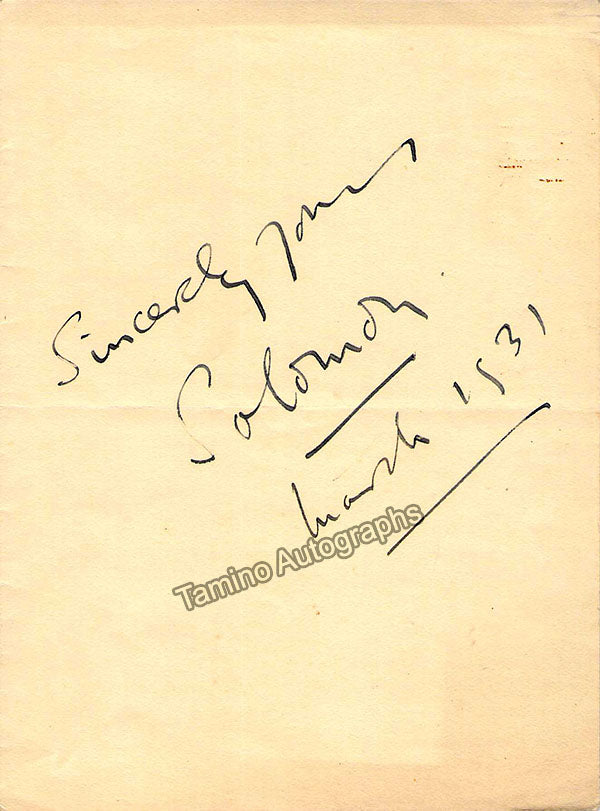 Sincerely yours
Solomon
March 1931
Tamino Autographs